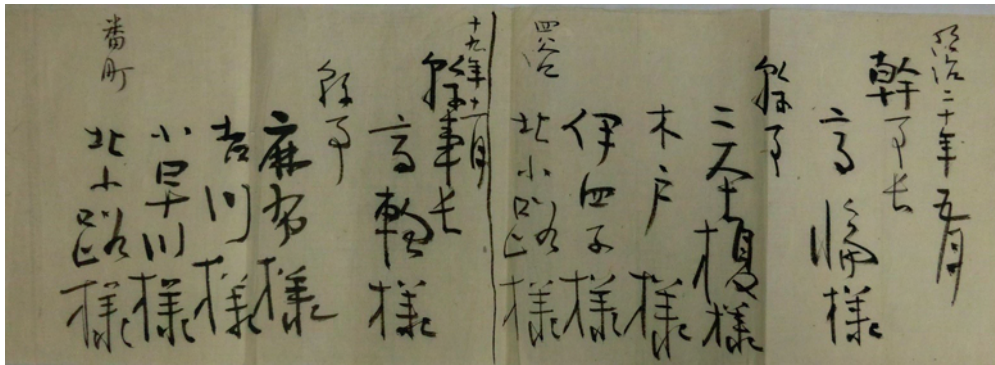 明治二十年五月
幹事長
高輪様
幹事
二本榎様
木戸様
伊四子様
四谷
北小路様
十九年十一月
幹事長
高輪様
幹事
麻布様
吉川様
小早川様
番町
北小路様